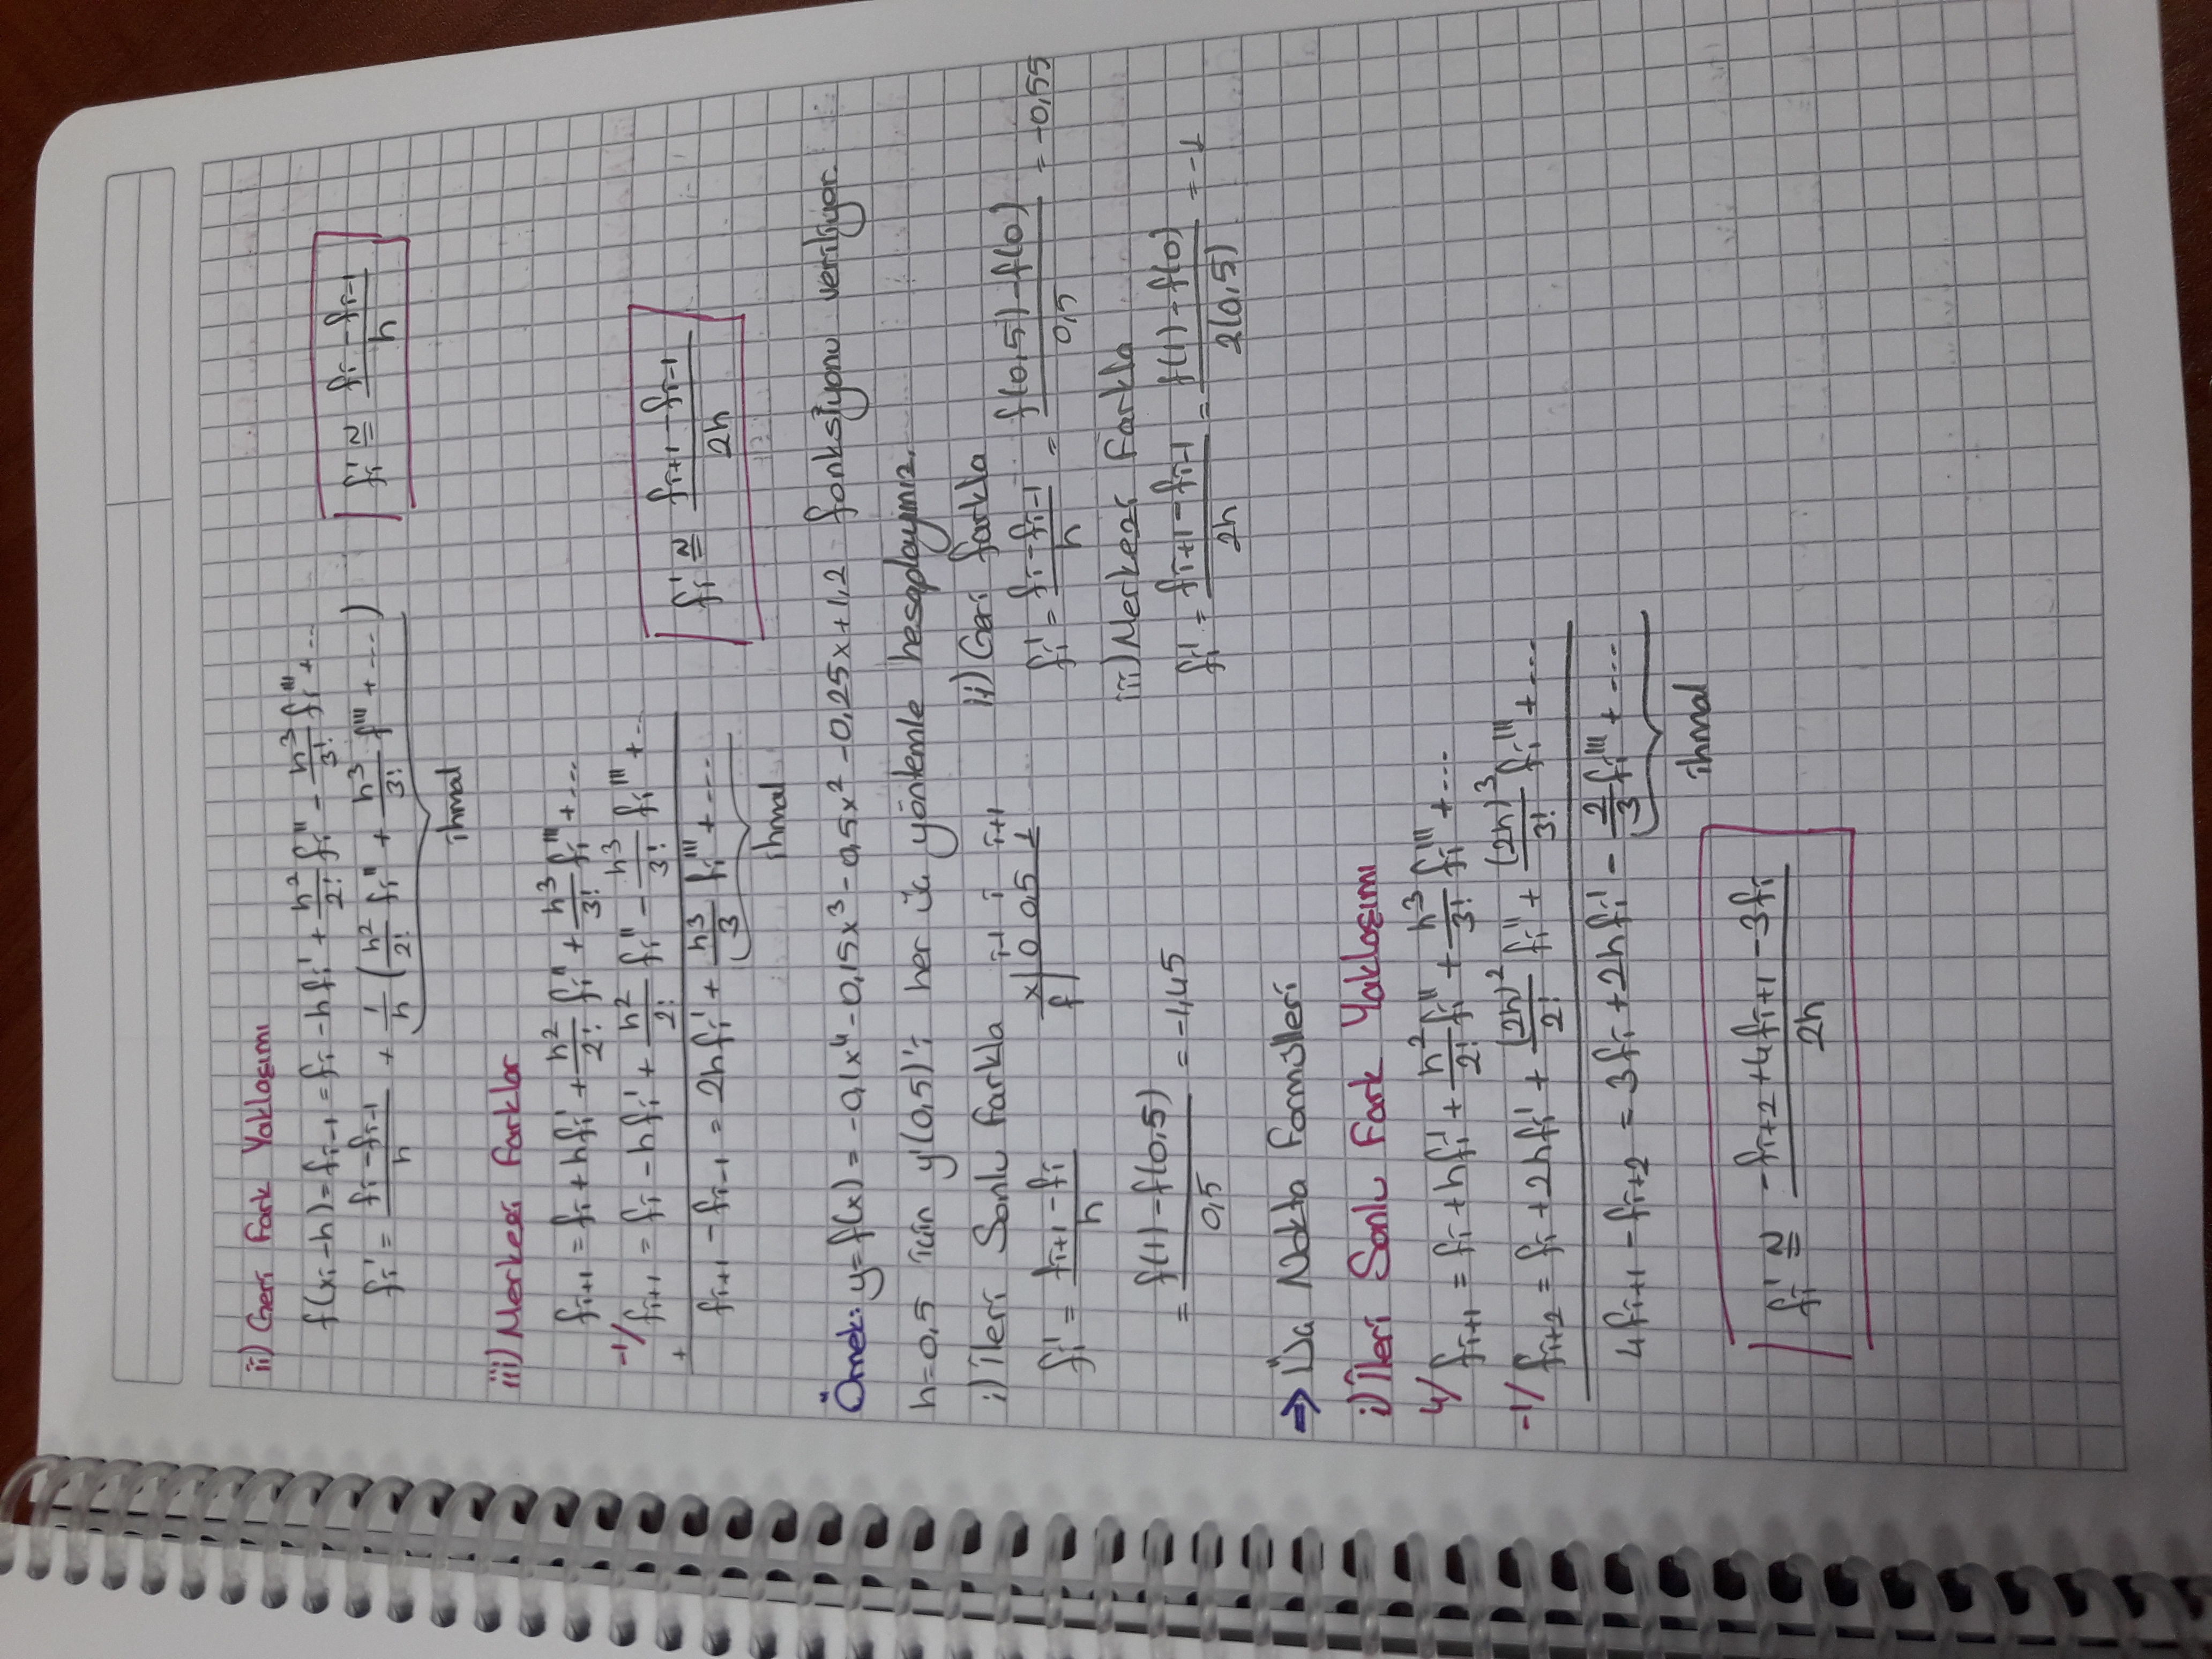 ii) Geri Fark Yaklaşımı
f(xi-h) = fi-1 = fi - hfi' + h²/2! fi'' - h³/3! fi''' + ...
fi' = (fi - fi-1)/h + 1/h (h²/2! fi'' + h³/3! f''' + ...)
fi' ≅ (fi - fi-1)/h
ihmal
iii) Merkezi Farklar
fi+1 = fi + hfi' + h²/2! fi'' + h³/3! fi''' + ...
-1/ fi+1 = fi - hfi' + h²/2! fi'' - h³/3! fi''' + ..
+
fi+1 - fi-1 = 2hfi' + h³/3 fi''' + ...
fi' ≅ (fi+1 - fi-1)/2h
ihmal
Örnek: y=f(x) = -0,1x⁴ - 0,15x³ - 0,5x² - 0,25x + 1,2 fonksiyonu veriliyor.
h=0,5 için y'(0,5)'i her üç yöntemle hesaplayınız.
i) İleri Sonlu farkla
i-1 i i+1
x| 0 0,5 1
f|
fi' = (fi+1 - fi)/h
= (f(1) - f(0,5))/0,5 = -1,45
ii) Geri farkla
fi' = (fi - fi-1)/h = (f(0,5) - f(0))/0,5 = -0,55
iii) Merkezi Farkla
fi' = (fi+1 - fi-1)/2h = (f(1) - f(0))/2(0,5) = -1
⇒ Üç Nokta Formülleri
i) İleri Sonlu Fark Yaklaşımı
4/ fi+1 = fi + hfi' + h²/2! fi'' + h³/3! fi''' + ...
-1/ fi+2 = fi + 2hfi' + (2h)²/2! fi'' + (2h)³/3! fi''' + ...
4fi+1 - fi+2 = 3fi + 2hfi' - 2/3 fi''' + ...
ihmal
fi' ≅ (-fi+2 + 4fi+1 - 3fi)/2h